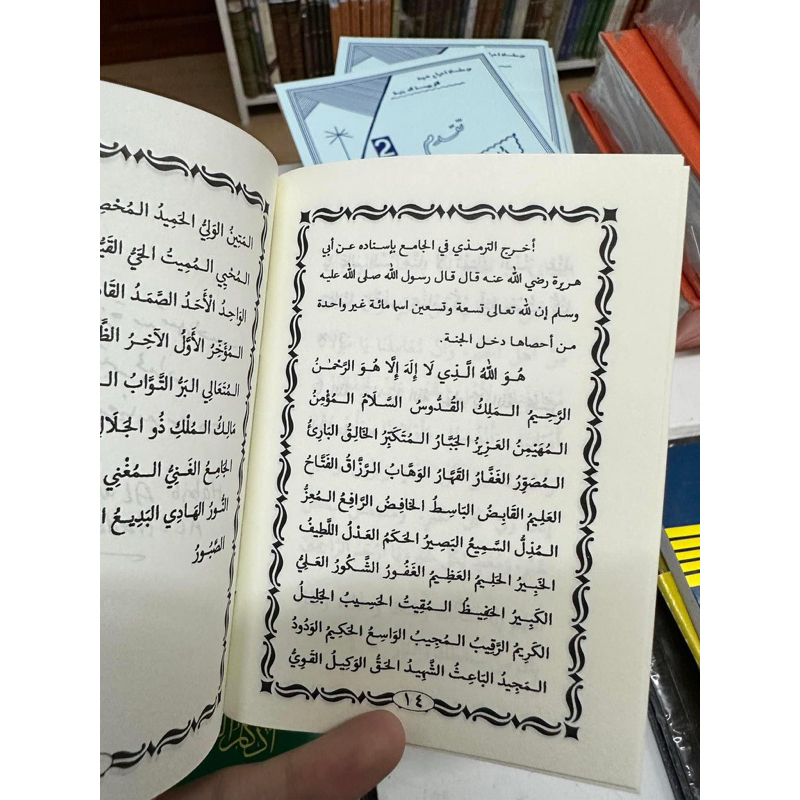 أخرج الترمذي في الجامع بإسناده عن أبي
هريرة رضي الله عنه قال قال رسول الله صلى الله عليه
وسلم إن لله تعالى تسعة وتسعين اسما مائة غير واحدة
من أحصاها دخل الجنة.
هُوَ اللهُ الَّذِي لَا إِلَهَ إِلَّا هُوَ الرَّحْمٰنُ
الرَّحِيمُ الـمَلِكُ القُدُّوسُ السَّلَامُ الـمُؤْمِنُ
الـمُهَيْمِنُ العَزِيزُ الجَبَّارُ الـمُتَكَبِّرُ الخَالِقُ البَارِئُ
الـمُصَوِّرُ الغَفَّارُ القَهَّارُ الوَهَّابُ الرَّزَّاقُ الفَتَّاحُ
العَلِيمُ القَابِضُ البَاسِطُ الخَافِضُ الرَّافِعُ الـمُعِزُّ
الـمُذِلُّ السَّمِيعُ البَصِيرُ الحَكَمُ العَدْلُ اللَّطِيفُ
الخَبِيرُ الحَلِيمُ العَظِيمُ الغَفُورُ الشَّكُورُ العَلِيُّ
الكَبِيرُ الحَفِيظُ الـمُقِيتُ الحَسِيبُ الجَلِيلُ
الكَرِيمُ الرَّقِيبُ الـمُجِيبُ الوَاسِعُ الحَكِيمُ الوَدُودُ
الـمَجِيدُ البَاعِثُ الشَّهِيدُ الحَقُّ الوَكِيلُ القَوِيُّ
١٤
الـمَتِينُ الوَلِيُّ الحَمِيدُ
الـمُحْيِي الـمُمِيتُ الحَيُّ
الوَاحِدُ الأَحَدُ الصَّمَدُ
الـمُؤَخِّرُ الأَوَّلُ الآخِرُ
الـمُتَعَالِي البَرُّ التَّوَّابُ
مَالِكُ الـمُلْكِ ذُو الجَلَالِ
الجَامِعُ الغَنِيُّ الـمُغْنِي
النُّورُ الهَادِي البَدِيعُ
الصَّبُورُ
تقدم